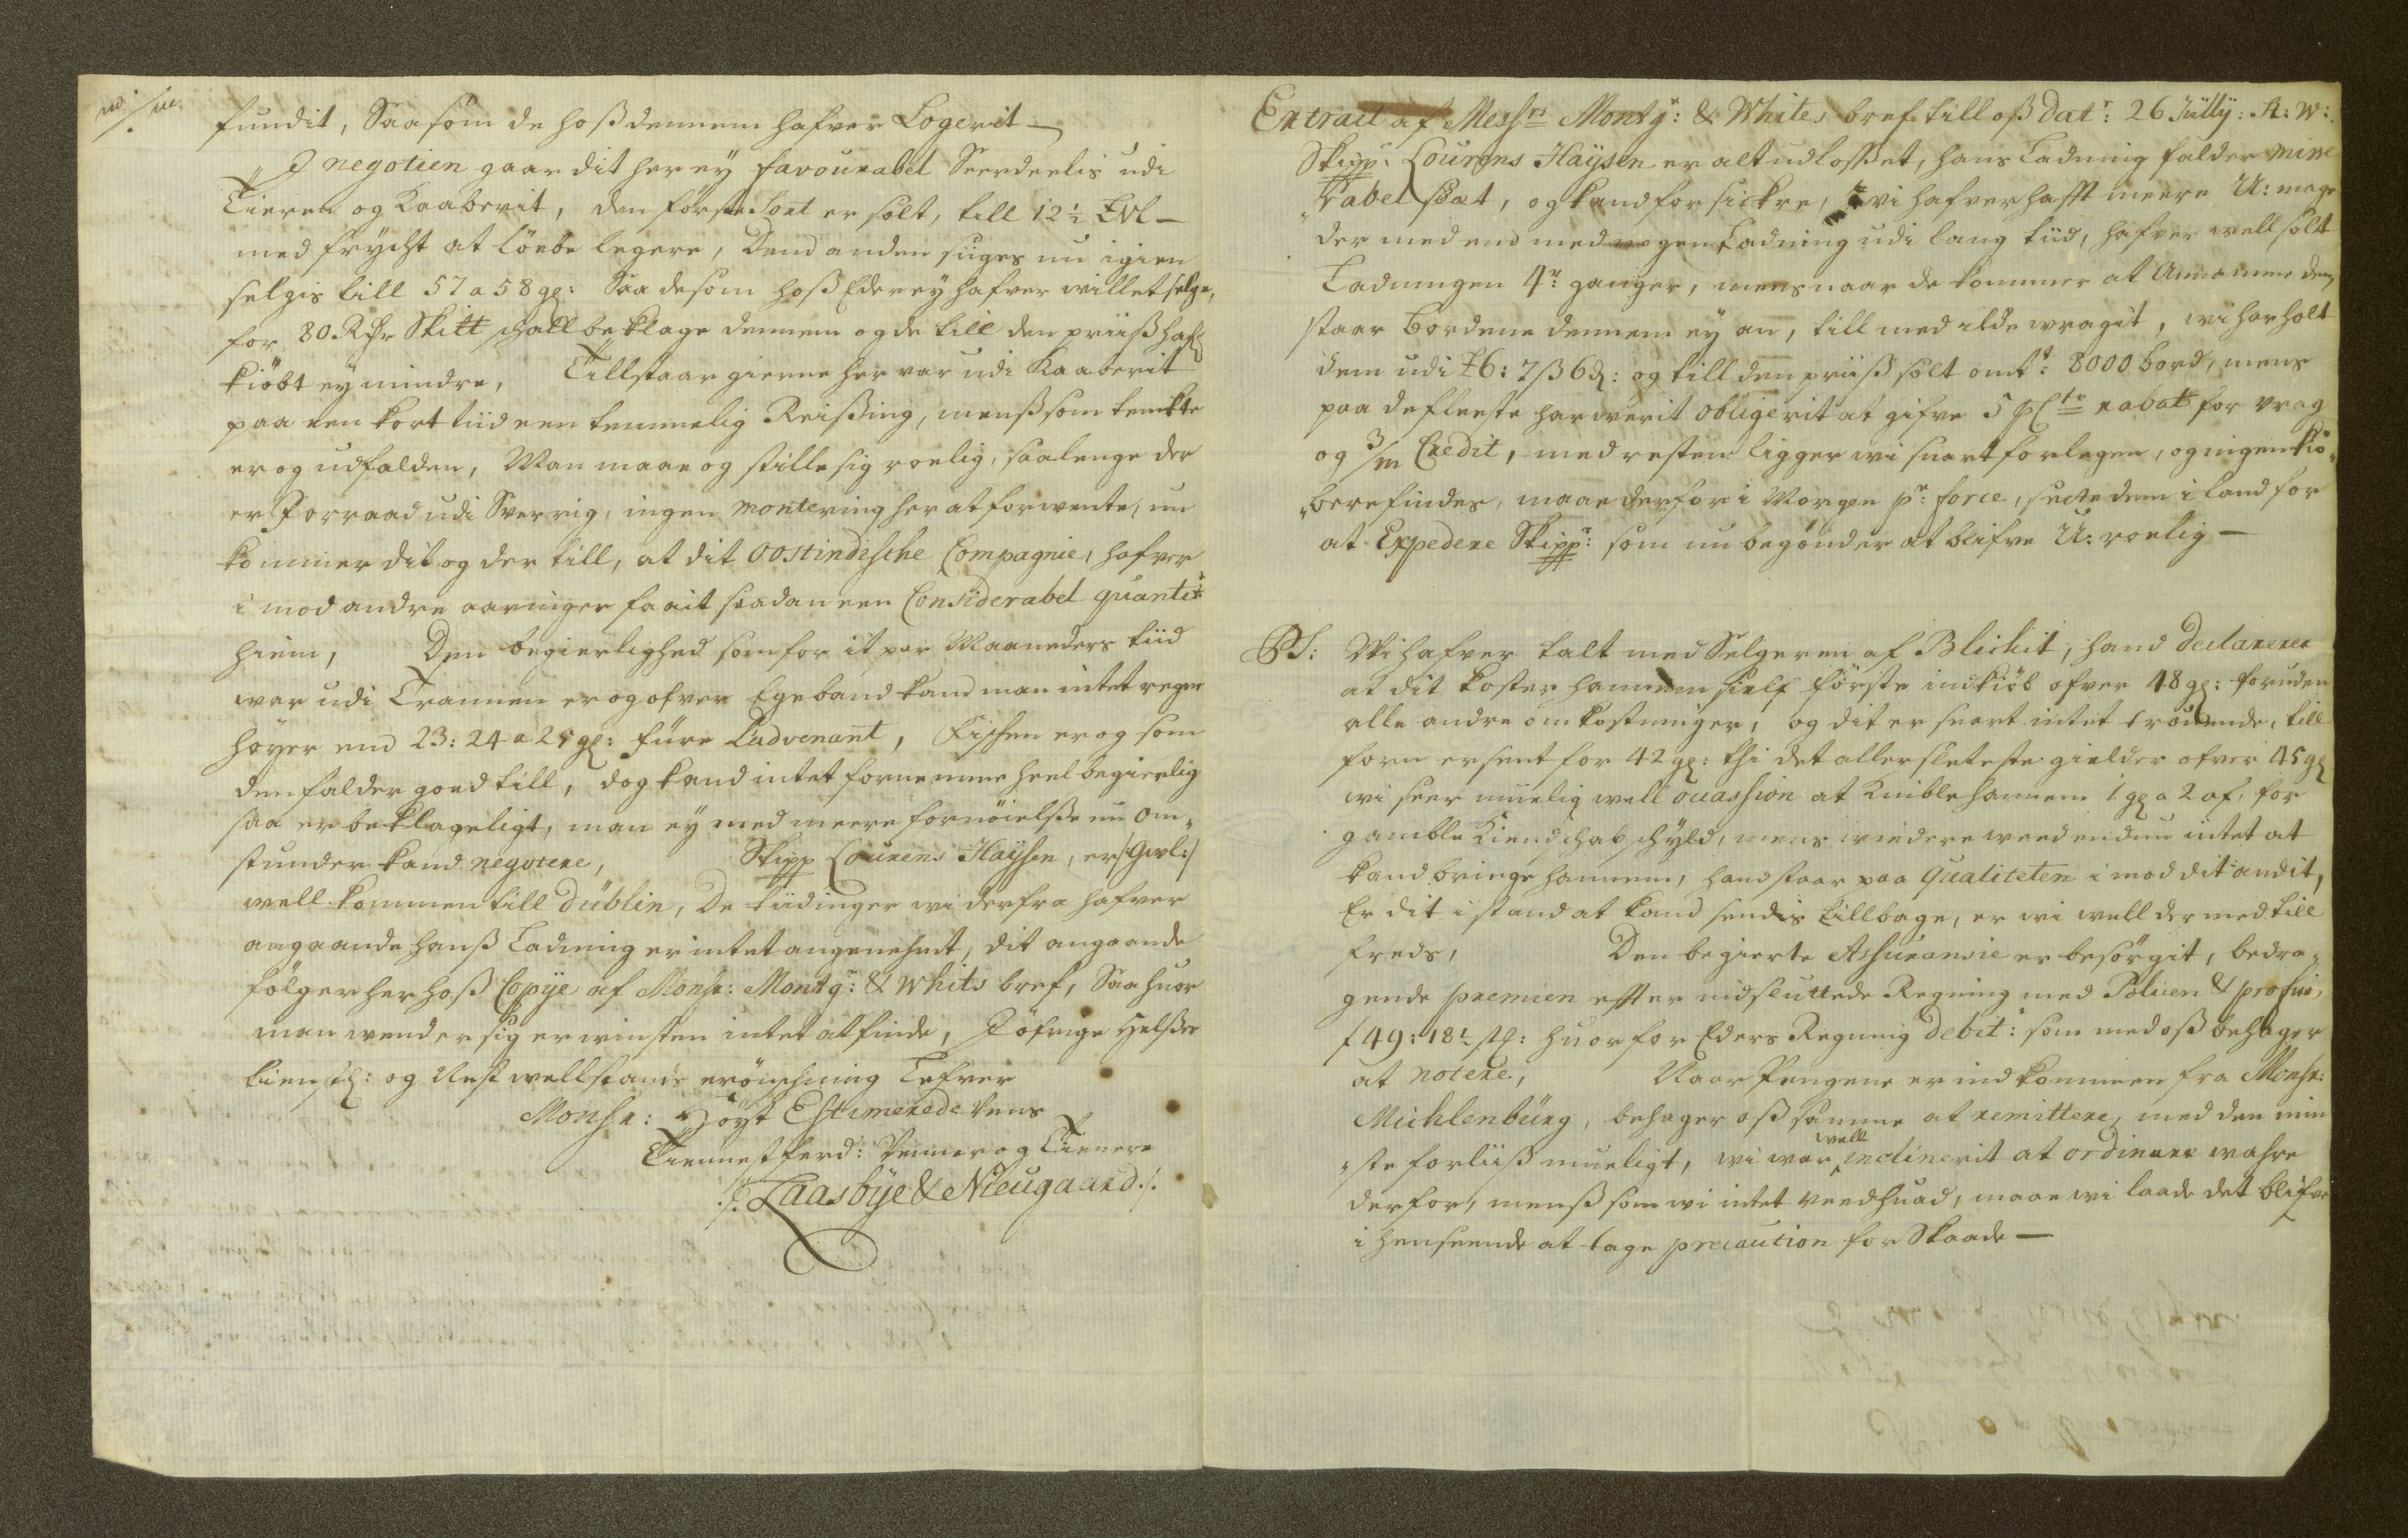 fundit, Saa som de hoß dennem hafver Logerit —
I negotien gaar dit her ey favourabel Serdeelis udi
Tieren og Kaaberit, den förste Sort er solt, till 12½ Lvl —
med frÿcht at löebe legere, Dend anden süges nu igien
selgis till 57 a 58 gl: Saa de som hoß Eder ey hafver willet selge,
for 80 Rdr Skitt schall beklage dennem og de till den priiß hafd
kiöbt ey mindre, Tillstaar gierne her var udi Kaaberit
paa een kort tiid een temmelig Reisßing, menß som tenkte
er og udfalden, Man maae og stille sig roelig, saalenge der
er Forraad udi Sverrig, ingen montering her at forwente, nu
kommer dit og der till, at dit Oostindische Compagnie, hafver
i mod andre aaringer faait saadan een Considerabel quantit:
hiem, Den begierlighed som for it par Maaneders tiid
war udi Trannen er og ofver Ege band kand man intet regne
höyer end 23: 24 a 25 gl: füre Ladvenant, Fisken er og som
den falder goed till, dog kand intet fornemme heel begierlig
saa er beklageligt, man ey med meere fornöielsße nu om„
stunder kand negotere, Skipp Lourens Haÿsen, er /:Gwl:/
well kommen till Düblin, De tiidinger wi derfra hafver
angaande hanß Ladning er intet angenehmt, dit angaande
fölger her hoß Copÿe af Monsr: Montgr: & Whits bref, Saa huor
man wender sig er winsten intet at finde, I öfrige Helsßer
tienstl: og Nest wellstands erönschning Lefver
Monsr: Höÿt Estimerede Vens
Tiennestferd: Venner og Tienere
./. Laasbÿe & Nieugaard ./.
Extract af Messrs Montgr: & Whites bref till oß datr: 26 Jülly: St: W:
Skippr: Lourens Haÿsen er alt udloßet, hans Ladning falder mise
„rabel slæt, og kand forsickre, wi hafver hafft meere U: mage
der med end med nogen Ladning udi lang tiid, hafver well solt
Ladningen 4r: ganger, mens naar de kommer at Annamme dem,
staar bordene dennem ey an, till med ilde wragit, wi har holt
dem udi £6: 7ß 6d: og till den priiß solt omtt: 8000 bord, mens
paa de fleeste har werit obligerit at gifve 5 pCto rabat for vrag
og 3/m Credit, med resten ligger wi snart forlegen, og ingen kiö„
„bere findes, maae derfor i Morgen pr: force, sæte dem i land for
at Expedere Skippr: som nu begönder at blifve U: roelig —
PS: Wi hafver talt med Selgeren af Blickit, hand declarerer
at dit koster hannem sielf förste indkiöb ofver 48 gl: foruden
alle andre omkostninger, og dit er snart intet trouende, till
forn er sent for 42 gl: thi det aller sleteste gielder ofver 45 gl
wi seer muelig well ouassion at Knible hannem 1 gl a 2 af, for
gamble Kiendschab schyld, mens widere weed endnu intet at
kand bringe hannem, hand staar paa Qualiteten i mod dit andit,
Er dit i stand at kand sendis tillbage, er wi well der med till
freds, Den begierte Assuransie er besörgit, bedra„
gende premien effter indsluttede Regning med Policen & profisi,
f 49: 18½ stl: huor for Eders Regning debit: som med oß behager
at notere, Naar Pengene er ind kommen fra Monsr:
Michlenbürg, behager oß samme at remittere, med den min
„ste forliiß mueligt, wi war well inclinerit at ordinere wahre
der for, menß som wi intet veed huad, maae wi laade det blifve
i henseende at tage precaution for Skaade —